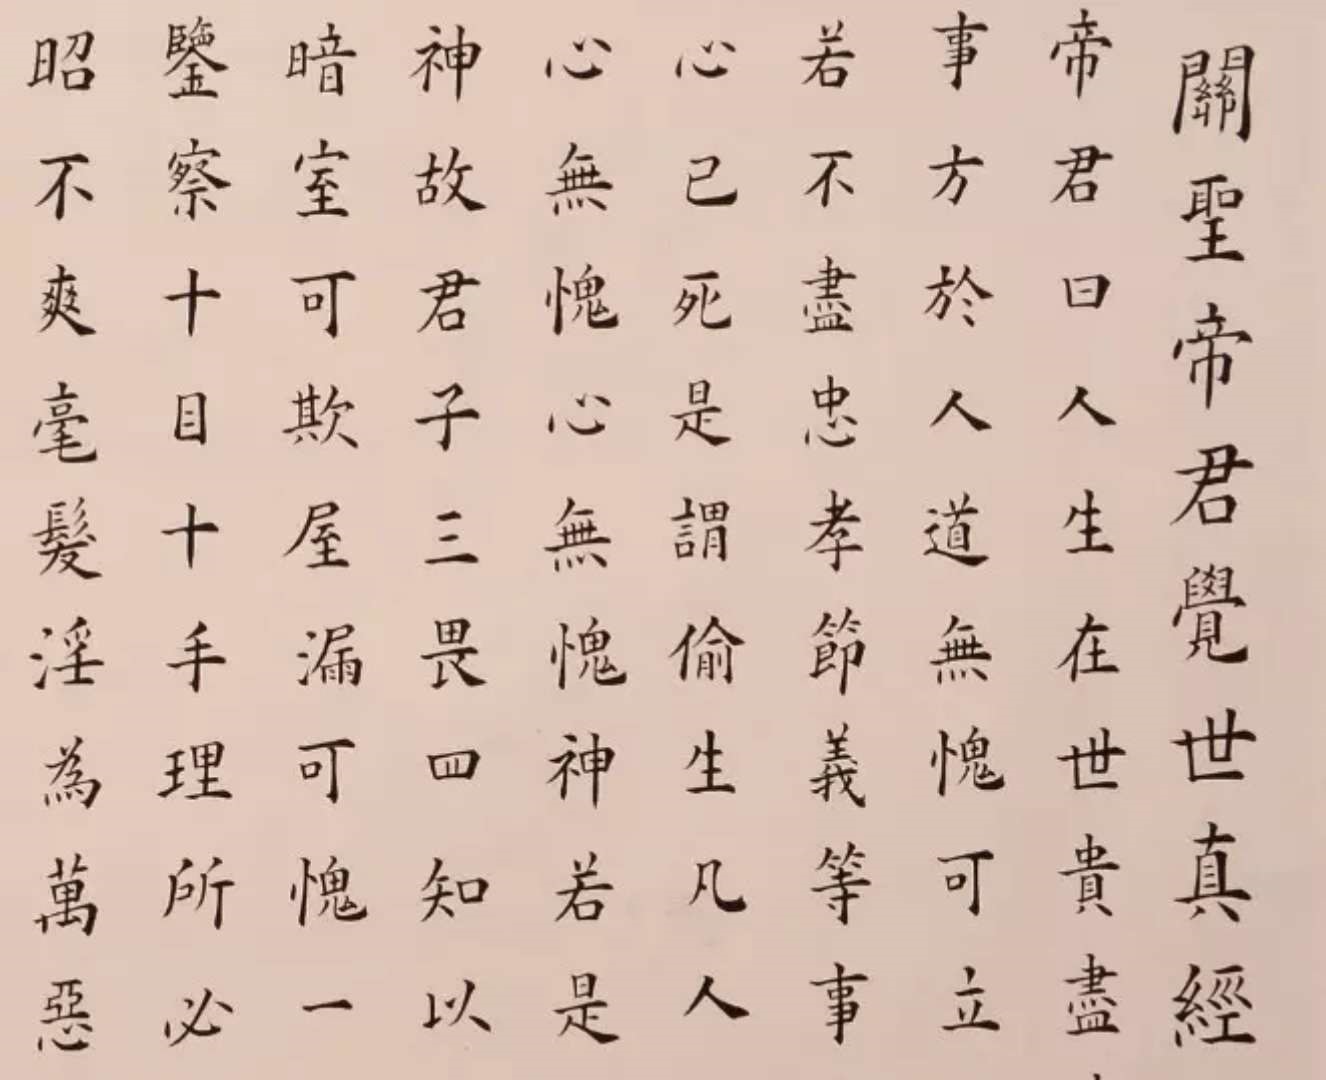 關聖帝君覺世真經
帝君曰人生在世貴盡
事方於人道無愧可立
若不盡忠孝節義等事
心已死是謂偷生凡人
心無愧心無愧神若是
神故君子三畏四知以
暗室可欺屋漏可愧一
鑒察十目十手理所必
昭不爽毫髮淫為萬惡